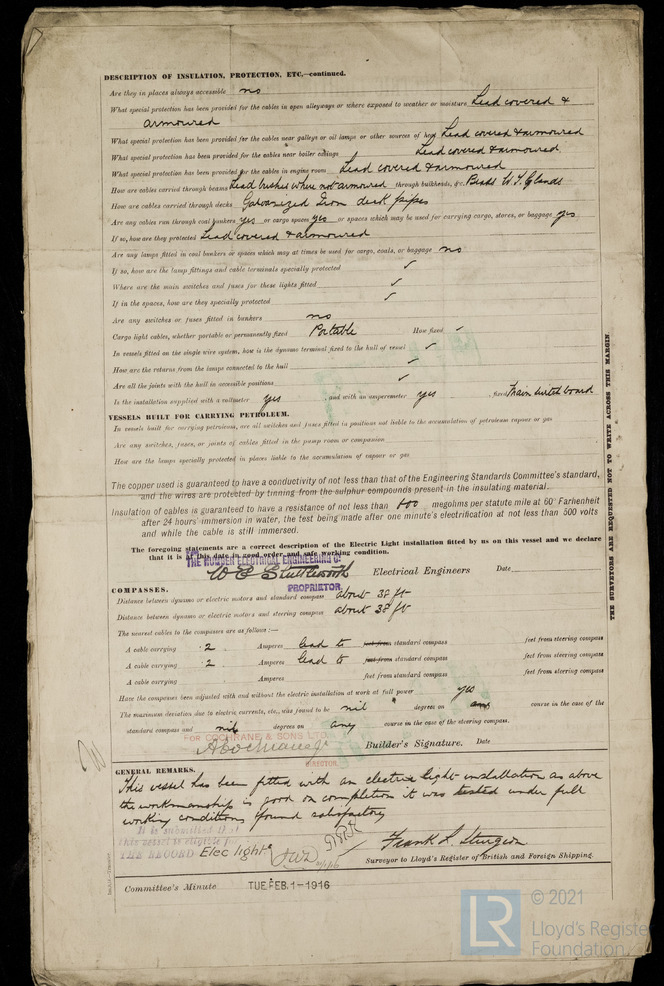 DESCRIPTION OF INSULATION, PROTECTION, ETC.—continued.
Are they in places always accessible no
What special protection has been provided for the cables in open alleyways or where exposed to weather or moisture Lead covered &
armoured
What special protection has been provided for the cables near galleys or oil lamps or other sources of heat Lead covered & armoured
What special protection has been provided for the cables near boiler casings Lead covered & armoured
What special protection has been provided for the cables in engine room Lead covered & armoured
How are cables carried through beams Lead bushes where not armoured through bulkheads, &c. W.T. Glands
How are cables carried through decks Galvanized Iron deck pipes
Are any cables run through coal bunkers yes or cargo spaces yes or spaces which may be used for carrying cargo, stores, or baggage yes
If so, how are they protected Lead covered & armoured
Are any lamps fitted in coal bunkers or spaces which may at times be used for cargo, coals, or baggage no
If so, how are the lamp fittings and cable terminals specially protected ✓
Where are the main switches and fuses for these lights fitted ✓
If in the spaces, how are they specially protected ✓
Are any switches or fuses fitted in bunkers no
Cargo light cables, whether portable or permanently fixed Portable How fixed ✓
In vessels fitted on the single wire system, how is the dynamo terminal fixed to the hull of vessel ✓
How are the returns from the lamps connected to the hull ✓
Are all the joints with the hull in accessible positions ✓
Is the installation supplied with a voltmeter yes, and with an amperemeter yes, fixed Main switch board
VESSELS BUILT FOR CARRYING PETROLEUM.
In vessels built for carrying petroleum, are all switches and fuses fitted in positions not liable to the accumulation of petroleum vapour or gas
Are any switches, fuses, or joints of cables fitted in the pump room or companion
How are the lamps specially protected in places liable to the accumulation of vapour or gas
The copper used is guaranteed to have a conductivity of not less than that of the Engineering Standards Committee's standard,
and the wires are protected by tinning from the sulphur compounds present in the insulating material.
Insulation of cables is guaranteed to have a resistance of not less than 600 megohms per statute mile at 60° Farhenheit
after 24 hours' immersion in water, the test being made after one minute's electrification at not less than 500 volts
and while the cable is still immersed.
The foregoing statements are a correct description of the Electric Light installation fitted by us on this vessel and we declare
that it is at this date in good order and safe working condition.
THE HUMBER ELECTRICAL ENGINEERING Co
W E Shuttleworth Electrical Engineers Date
PROPRIETOR.
COMPASSES.
Distance between dynamo or electric motors and standard compass about 38 ft
Distance between dynamo or electric motors and steering compass about 38 ft
The nearest cables to the compasses are as follows:—
A cable carrying .2 Amperes lead to feet from standard compass feet from steering compass
A cable carrying .2 Amperes lead to feet from standard compass feet from steering compass
A cable carrying Amperes feet from standard compass feet from steering compass
Have the compasses been adjusted with and without the electric installation at work at full power yes
The maximum deviation due to electric currents, etc., was found to be nil degrees on any course in the case of the
standard compass and nil degrees on any course in the case of the steering compass.
FOR COCHRANE & SONS LTD.
Builder's Signature. Date
DIRECTOR.
GENERAL REMARKS.
This vessel has been fitted with an electric light installation as above
the workmanship is good on completion it was tested under full
working conditions found satisfactory
It is submitted that
this vessel is eligible for
THE RECORD Elec light.
Frank L. Sturgeon
Surveyor to Lloyd's Register of British and Foreign Shipping.
Committee's Minute TUE. FEB. 1-1916
THE SURVEYORS ARE REQUESTED NOT TO WRITE ACROSS THIS MARGIN.
LR
© 2021
Lloyd's Register
Foundation